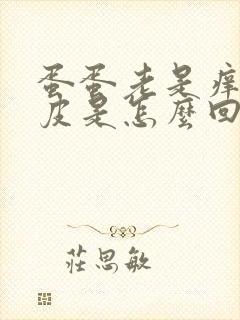 蛋蛋老是痒
皮是怎麼回
莊思敏